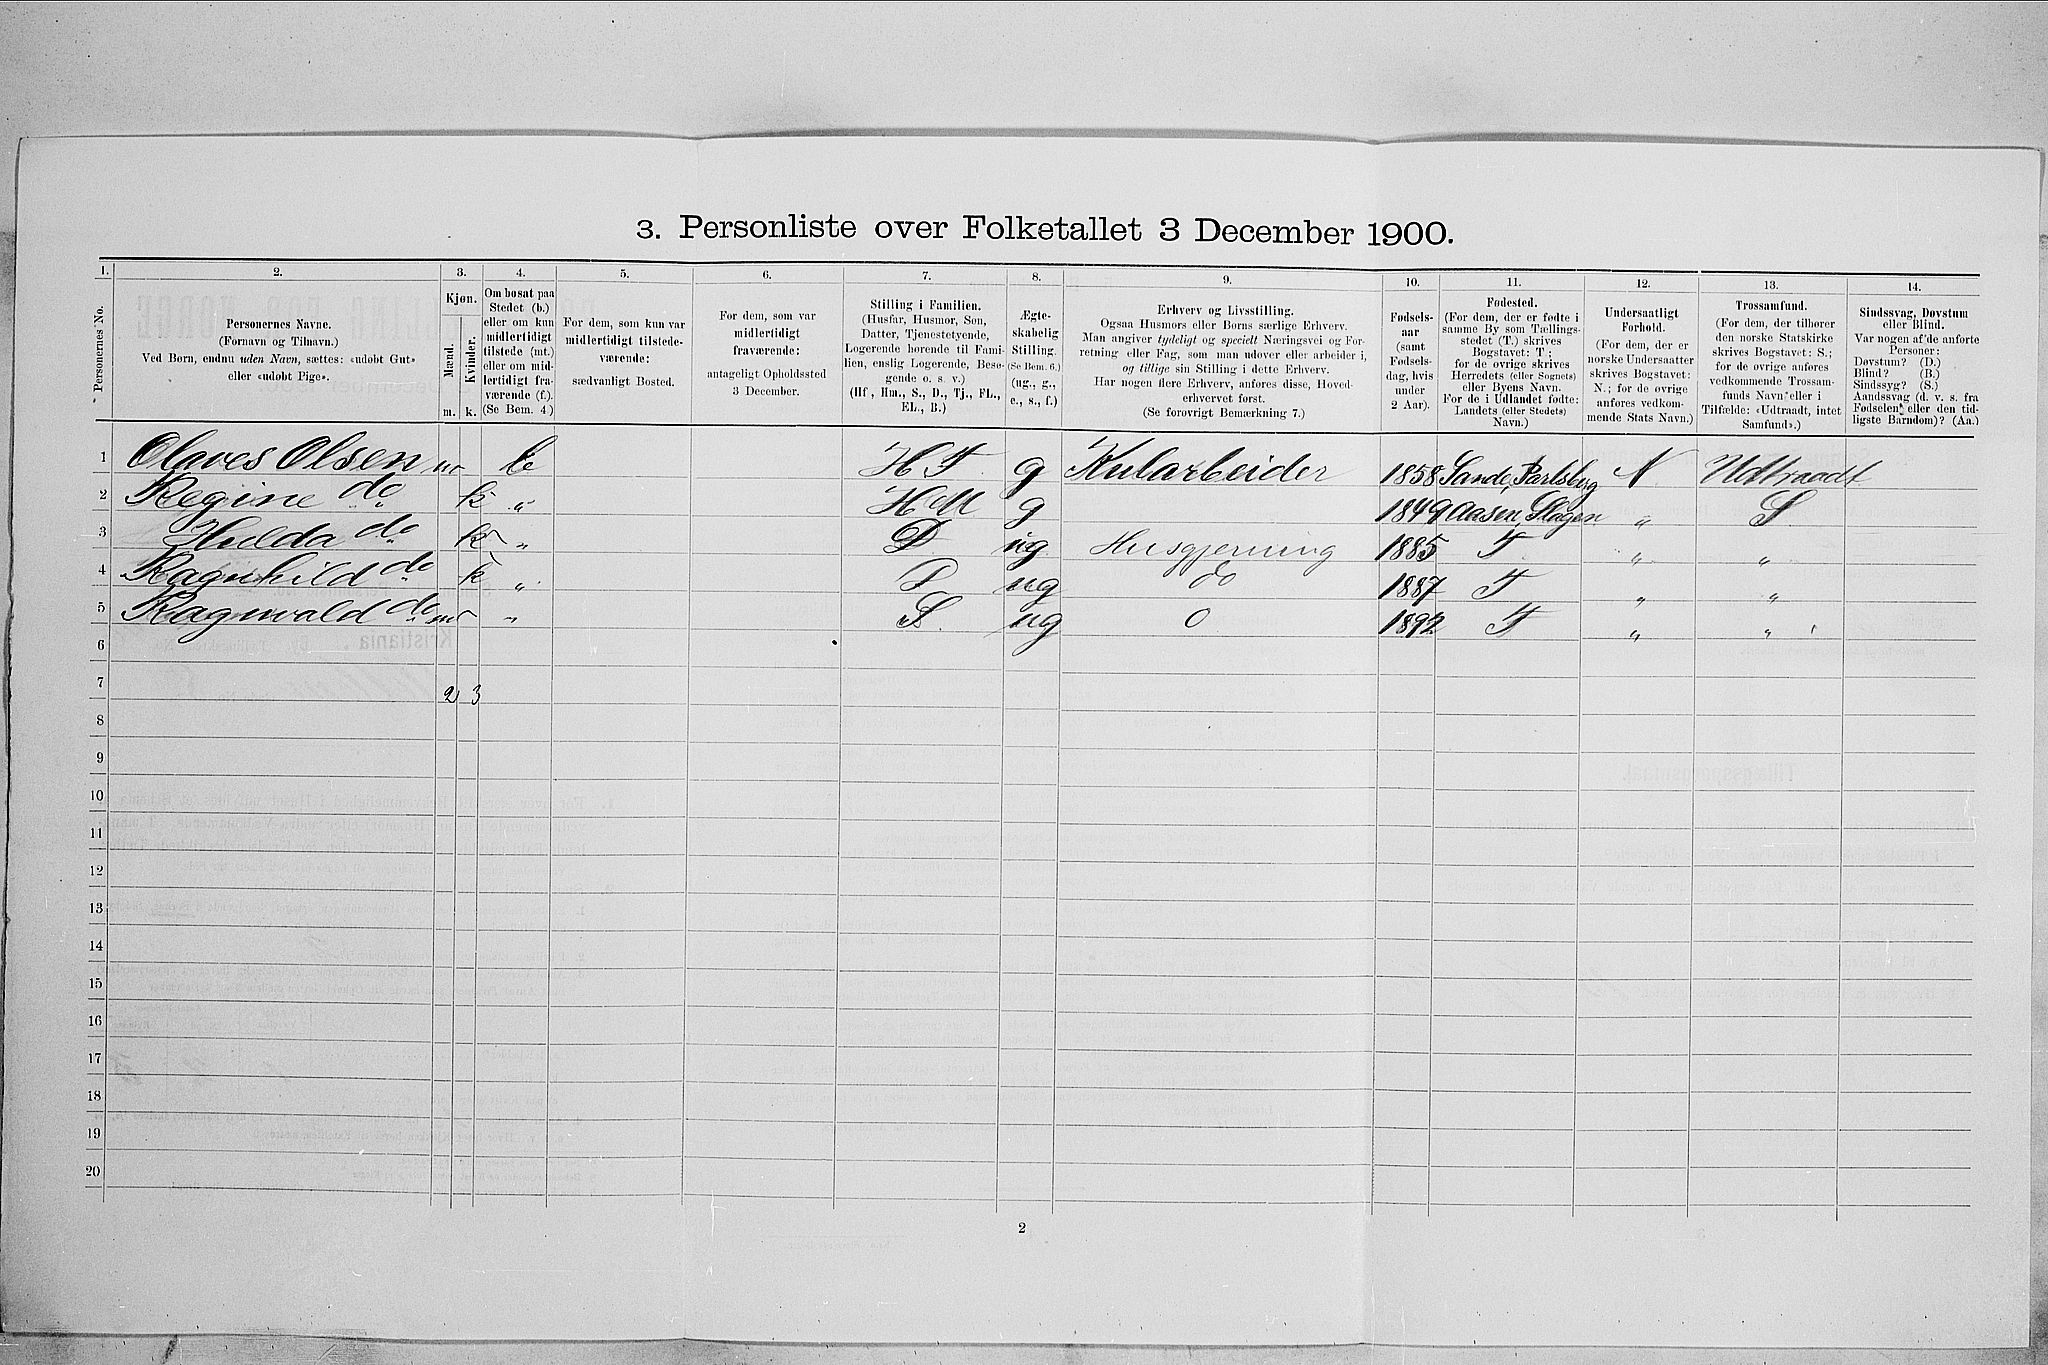 3. Personliste over Folketallet 3 December 1900.
1. 2. 3. 4. 5. 6. 7. 8. 9. 10. 11. 12. 13. 14.
Personernes No.
Personernes Navne.
(Fornavn og Tilnavn.)
Ved Børn, endnu uden Navn, sættes: «udøbt Gut»
eller «udøbt Pige».
Kjøn.
Mænd.
Kvinder.
m. k.
Om bosat paa
Stedet (b.)
eller om kun
midlertidigt
tilstede (mt.)
eller om mid-
lertidigt fra-
værende (f.).
(Se Bem. 4.)
For dem, som kun var
midlertidigt tilstede-
værende:
sædvanligt Bosted.
For dem, som var
midlertidigt
fraværende:
antageligt Opholdssted
3 December.
Stilling i Familien.
(Husfar, Husmor, Søn,
Datter, Tjenestetyende,
Logerende hørende til Fami-
lien, enslig Logerende, Besø-
gende o. s. v.)
(Hf., Hm., S., D., Tj., FL.,
EL., B.)
Ægte-
skabelig
Stilling.
(Se Bem. 6.)
(ug., g.,
e., s., f.)
Erhverv og Livsstilling.
Ogsaa Husmors eller Børns særlige Erhverv.
Man angiver tydeligt og specielt Næringsvei og For-
retning eller Fag, som man udøver eller arbeider i,
og tillige sin Stilling i dette Erhverv.
Har nogen flere Erhverv, anføres disse, Hoved-
erhvervet først.
(Se forøvrigt Bemærkning 7.)
Fødsels-
aar
(samt
Fødsels-
dag, hvis
under
2 Aar).
Fødested.
(For dem, der er fødte i
samme By som Tællings-
stedet (T.) skrives
Bogstavet: T;
for de øvrige skrives
Herredets (eller Sognets)
eller Byens Navn.
For de i Udlandet fødte:
Landets (eller Stedets)
Navn.)
Undersaatligt
Forhold.
(For dem, der er
norske Undersaatter
skrives Bogstavet:
N.; for de øvrige
anføres vedkom-
mende Stats Navn.)
Trossamfund.
(For dem, der tilhører
den norske Statskirke
skrives Bogstavet: S.;
for de øvrige anføres
vedkommende Trossam-
funds Navn eller i
Tilfælde: «Udtraadt, intet
Samfund».)
Sindssvag, Døvstum
eller Blind.
Var nogen af de anførte
Personer:
Døvstum? (D.)
Blind? (B.)
Sindssyg? (S.)
Aandssvag (d. v. s. fra
Fødselen eller den tid-
ligste Barndom)? (Aa.)
1 Olaves Olsen m b H F. g Kularbeider 1858 Sande, Jarlsberg N Udtraadt
2 Regine do k " H M g 1849 Aasen, Slagen " S
3 Hulda do k " D ug Husgjerning 1885 T " "
4 Ragnhild do k " D ug do 1887 T " "
5 Ragnvald do m " S. ug 0 1892 T " "
6
7 2 3
8
9
10
11
12
13
14
15
16
17
18
19
20
2